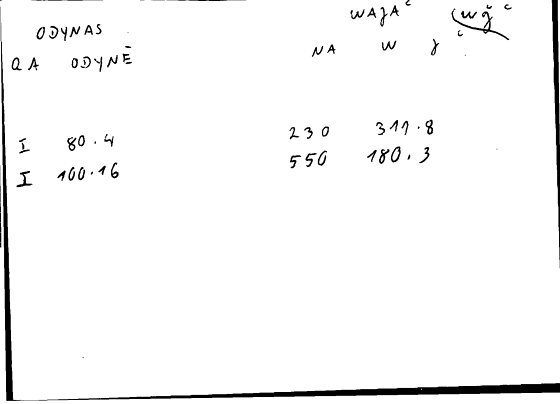 ODYNAS WAJAC (wğ c
QA ODYNĒ NA W J c
I 80.4 230 311.8
I 100.16 550 180.3